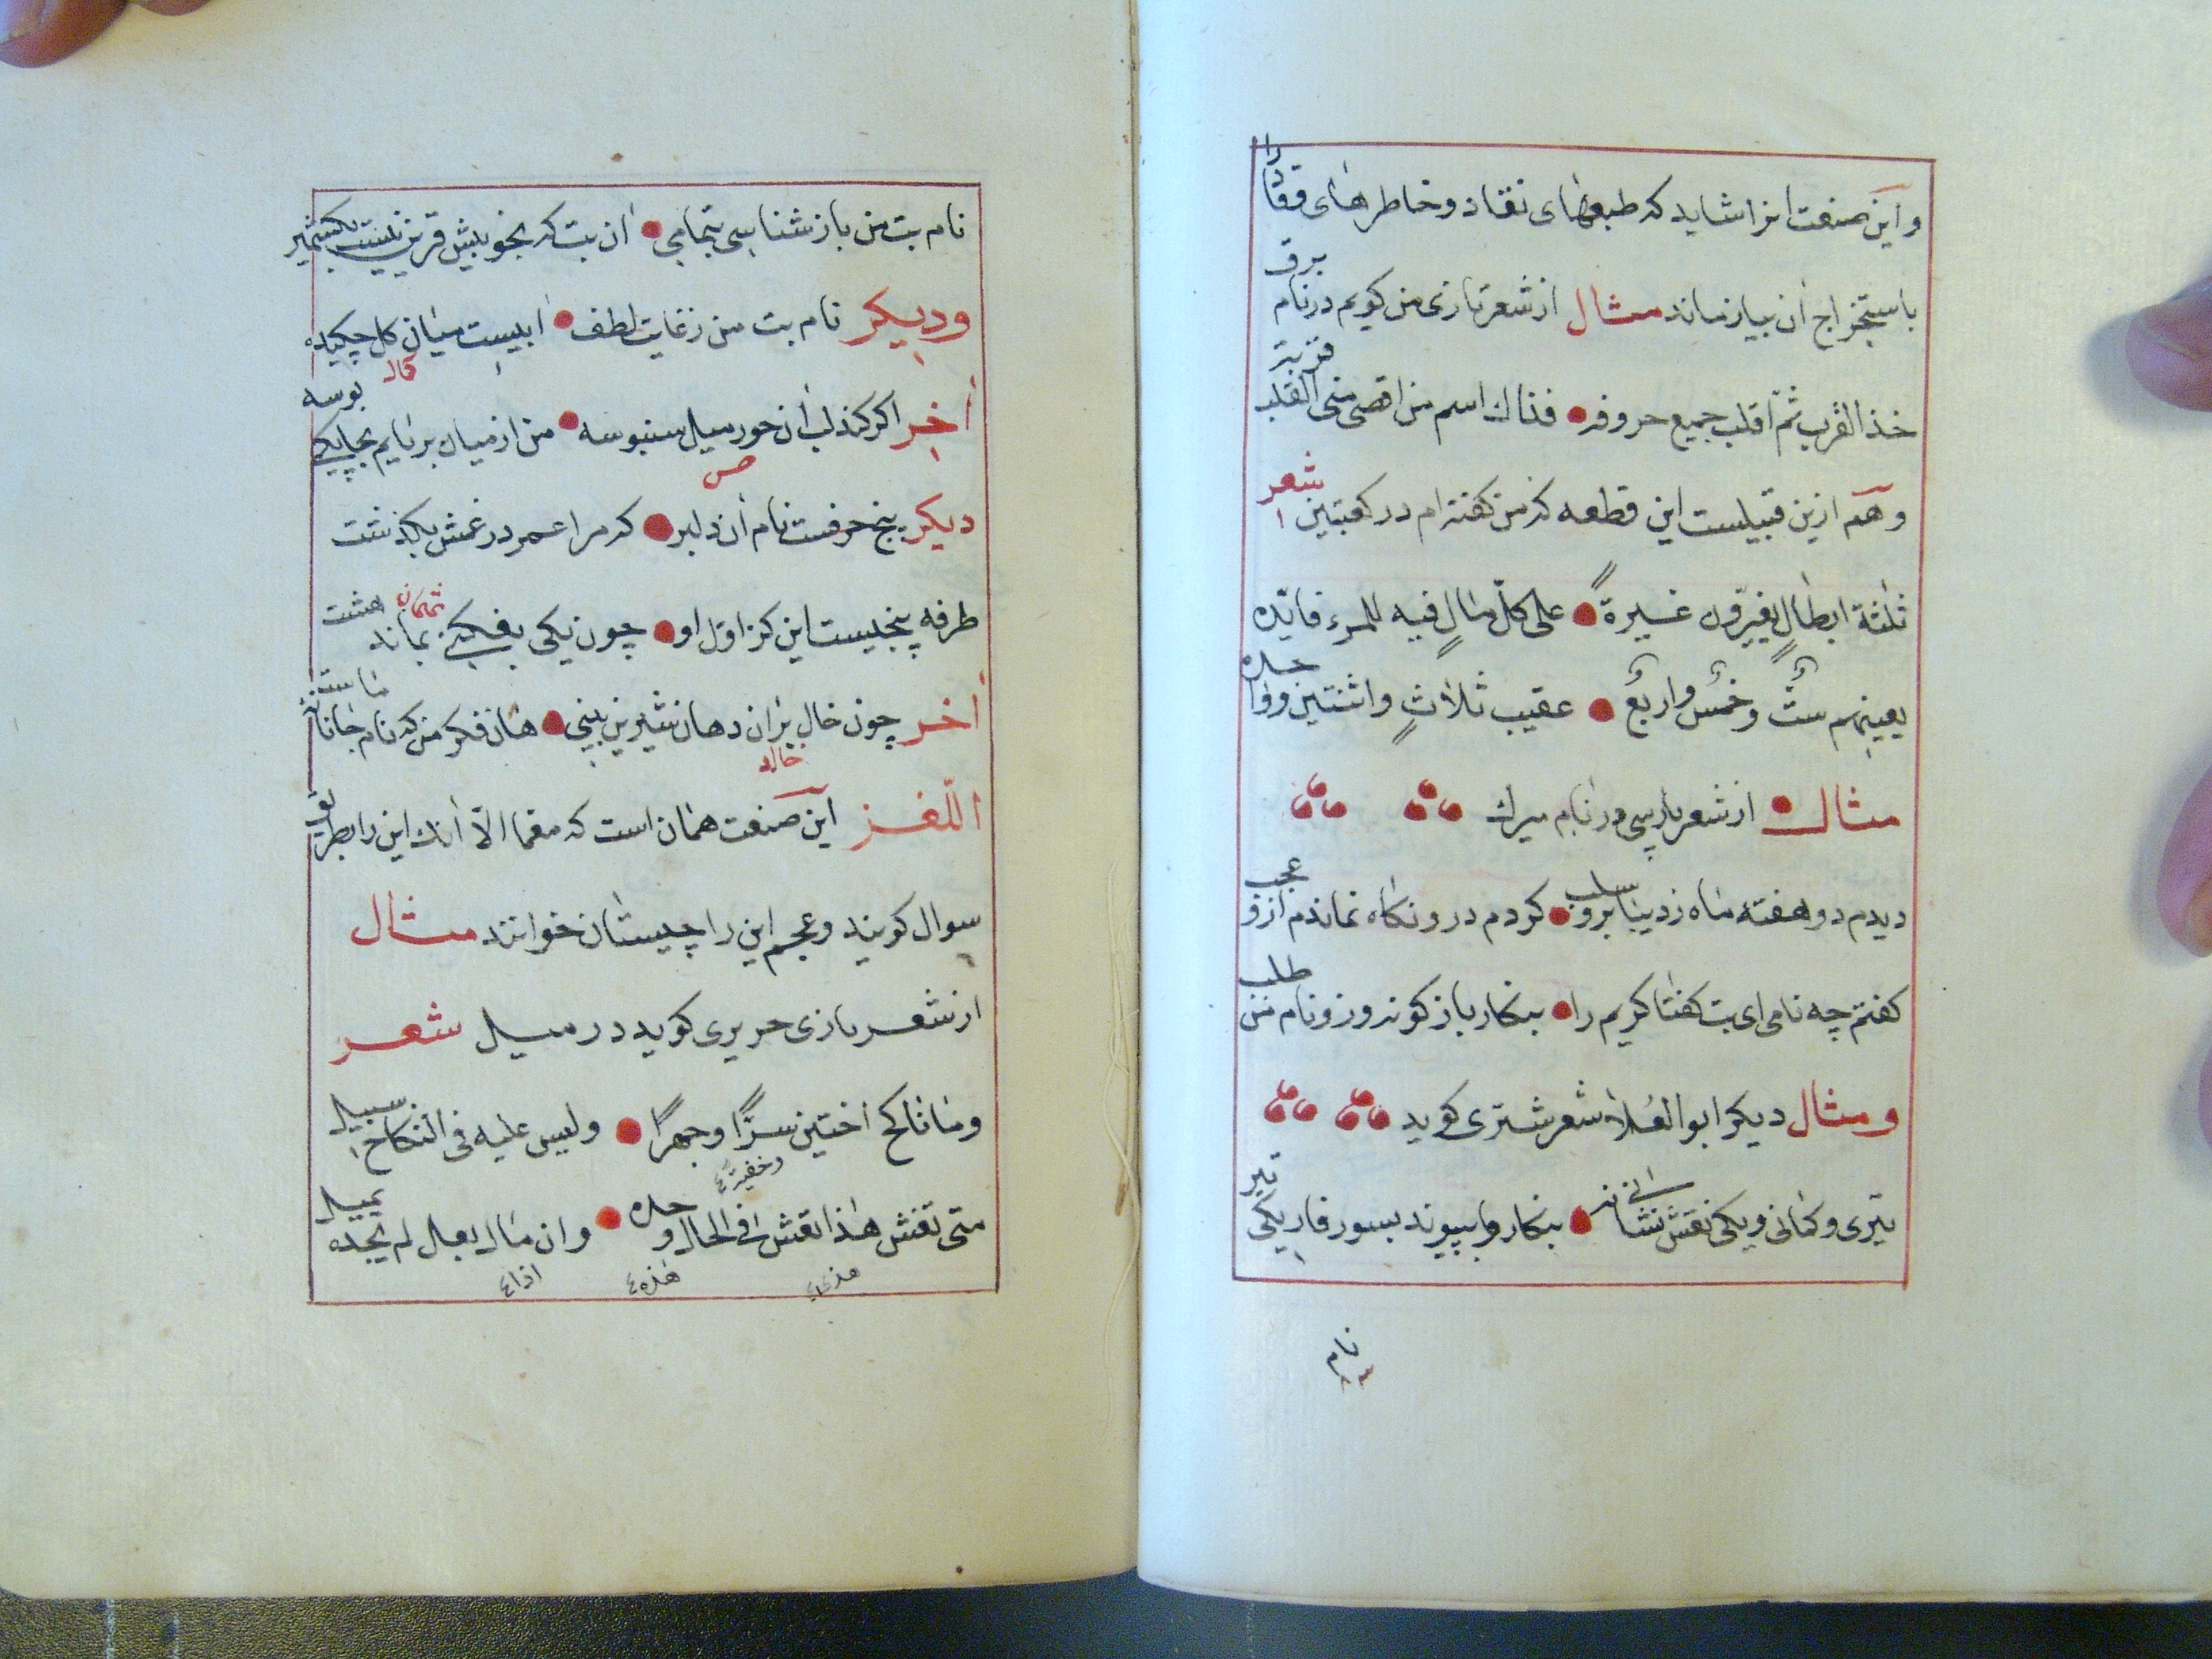 واین صنعت انرا شاید که طبعهای نقاد و خاطرهای وقاد را
باستخراج ان بیازماند مثال از شعر تازی من کویم در نام برق
خذ القرب ثمّ اقلب جمیع حروفه فذاك اسم من اقصی منی القلب قربه
وهم ازین قبیلست این قطعه که من کفته ام در کعبتین شعر
ثلثة ابطال یغیرون غیرة علی کلّ مال فیه للمرء فایده
یعینهم ستّ وخمس واربع عقیب ثلاثٍ واثنتین وواحده
مثال از شعر پارسی در نام میرك
دیدم دو هفته ماه زدیبا برو سلب کردم درو نکاه نماندم ازو عجب
کفتم چه نامی ای بت کفتا کریم را بنکار باز کونه وزو نام من طلب
ومثال دیکر ابو العُلا شعر شتری کوید
تیری وکمانی ویکی نقش نشانی بنکار وبپیوند بسوفار یکی تیر
نام
نام بت من بازشناسی بتمامی ان بت که بخوبیش قرین نیست بکشمیر
ودیکر نام بت من زغایت لطف ابیست میان کل چکیده
کمال
اخر اکر کند لب ان حور میل سنبوسه من از میان بربایم بچابکی بوسه
ص
دیکر پنج حرفست نام ان دلبر که مرا عمر در غمش بکذشت
طرفه پنجیست این کز اول او چون یکی بفکنی بماند هشت
عثمان
اخر چون خال بران دهان شیرین بینی هان فکر من که نام جانانست
خالد
اللّغز این صنعت همان است که معما الاّ انك این را بطریق
سوال کویند وعجم این را چیستان خوانند مثال
از شعر تازی حریری کوید در میل شعر
وما ناکح اختین سرًّا وجهرًا ولیس علیه فی النکاح سبیل
وخفیةً
متی تغش هذا تغش فی الحال وحده وان مال بعل لم یجده یمیل
هذی هذه اذا